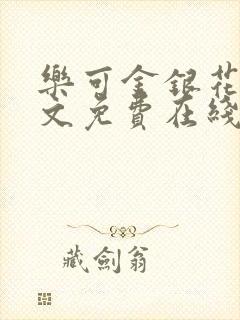 樂可金銀花
文免費在綫
藏劍翁